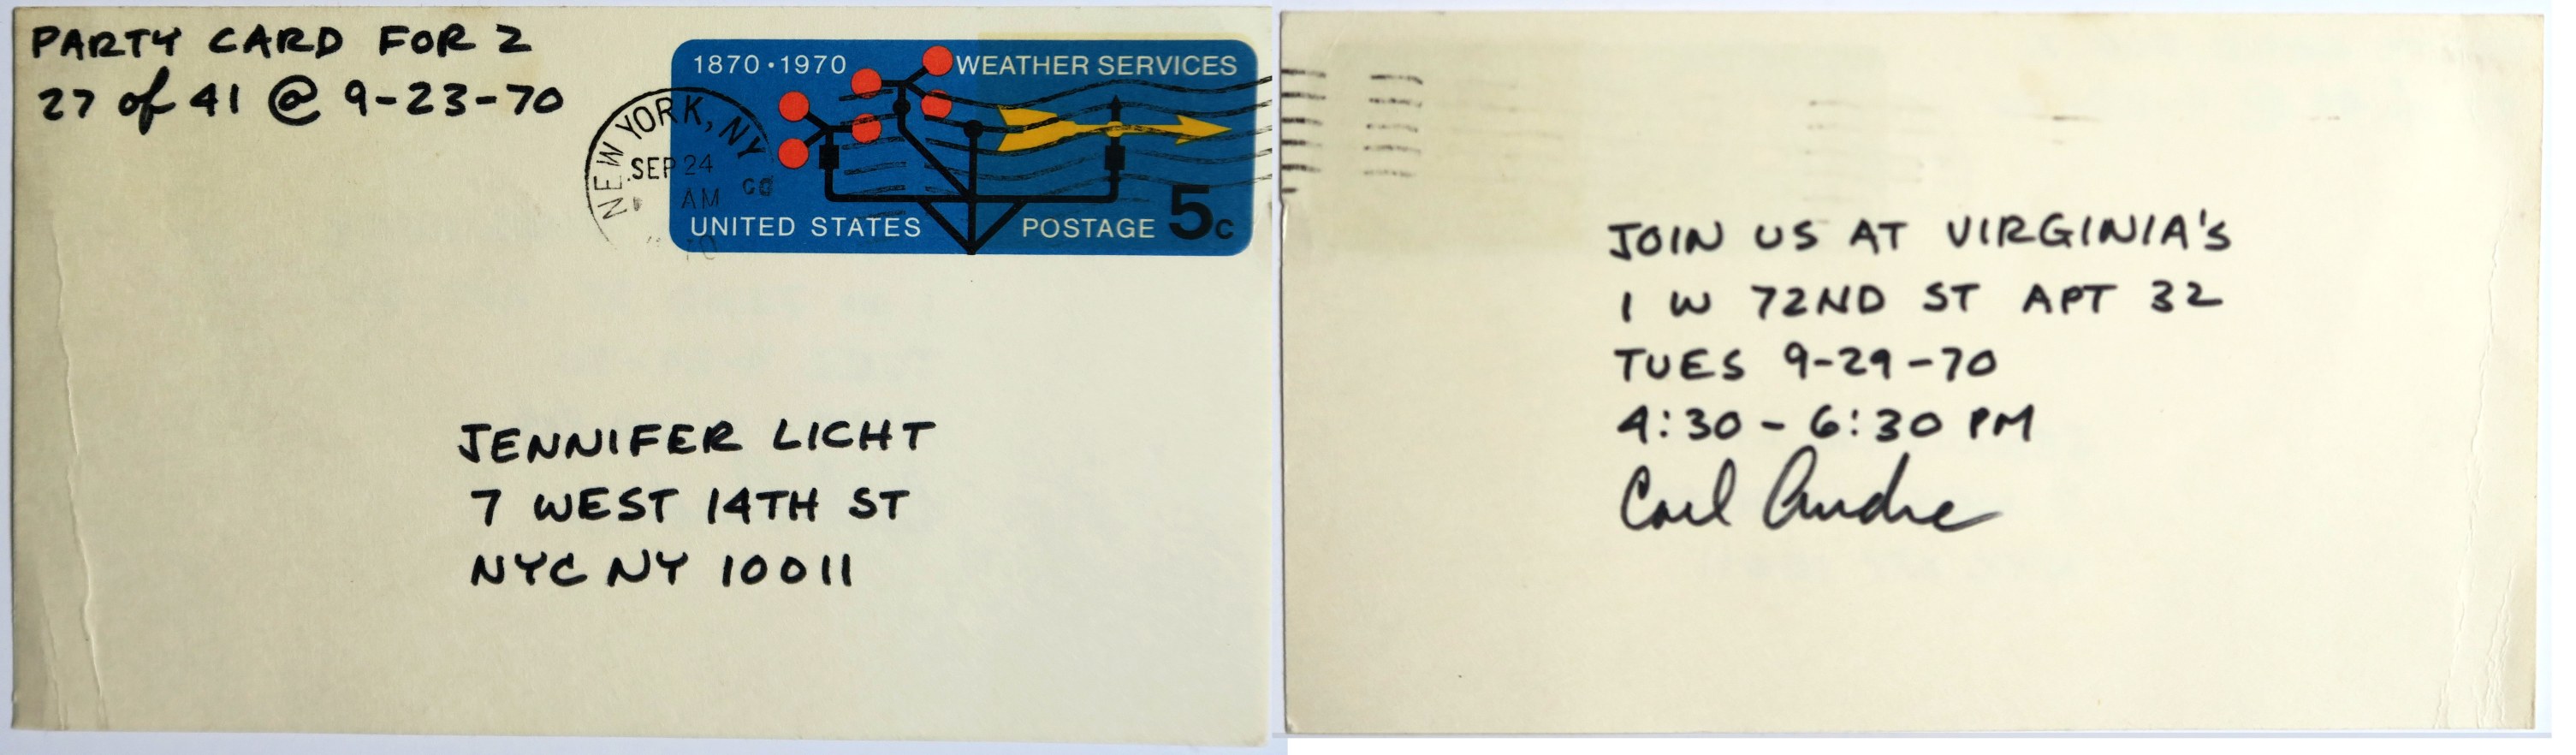 PARTY CARD FOR 2
27 of 41 @ 9-23-70
1870 • 1970 WEATHER SERVICES
NEW YORK, NY
SEP 24
AM
UNITED STATES POSTAGE 5c
JENNIFER LICHT
7 WEST 14TH ST
NYC NY 10011
JOIN US AT VIRGINIA'S
1 W 72ND ST APT 32
TUES 9-29-70
4:30 - 6:30 PM
Carl Andre